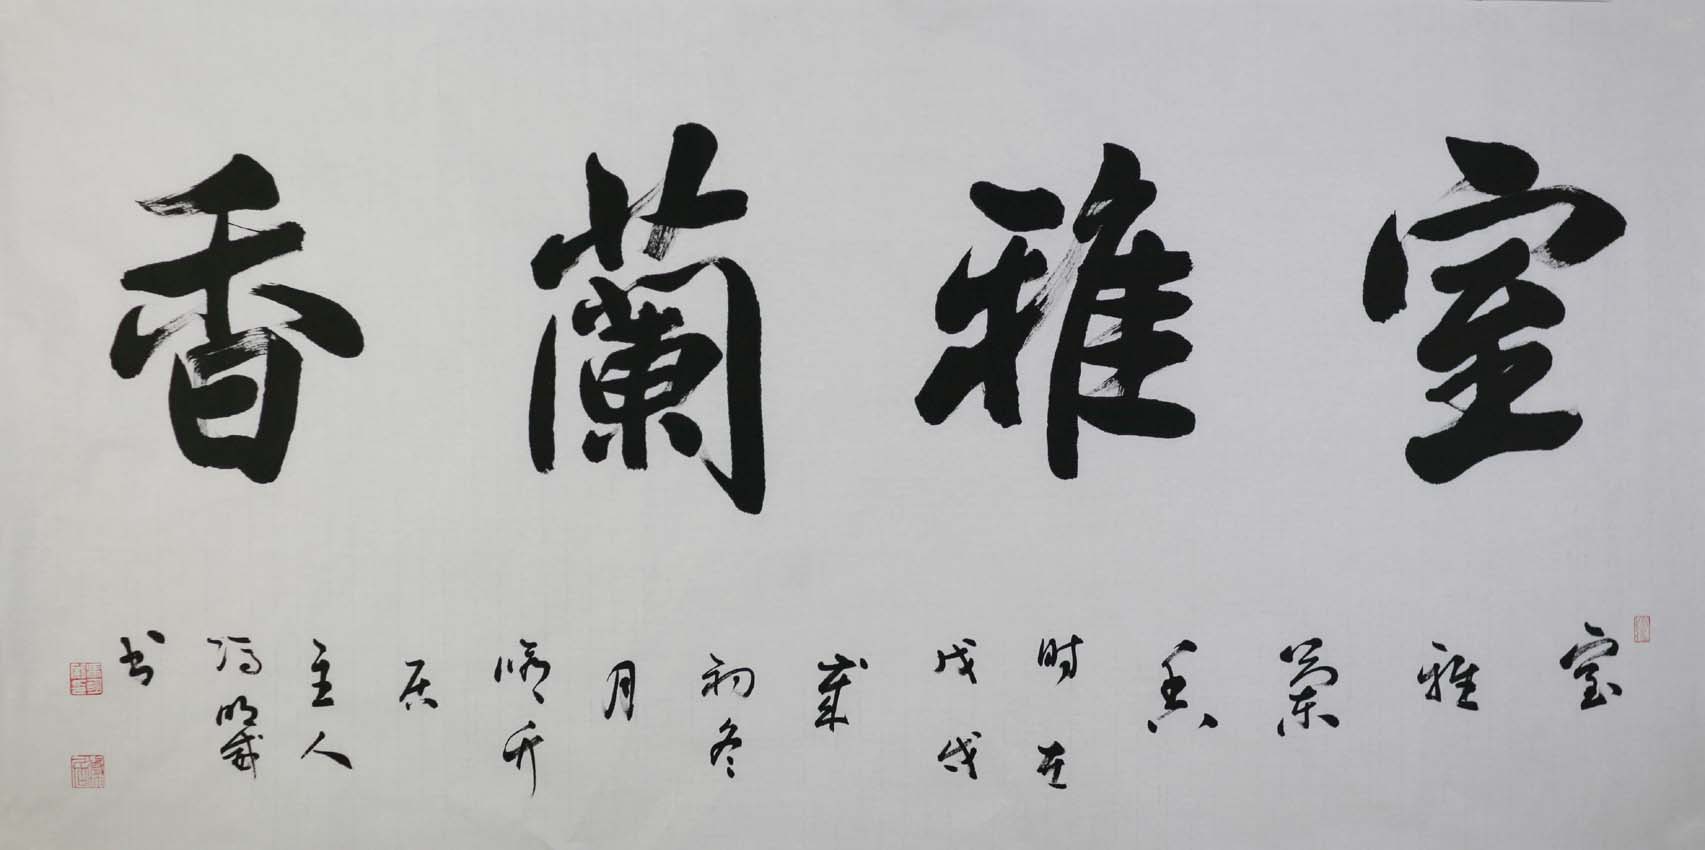 室雅蘭香
室雅兰香时在戊戌岁初冬月修竹居主人冯明威书